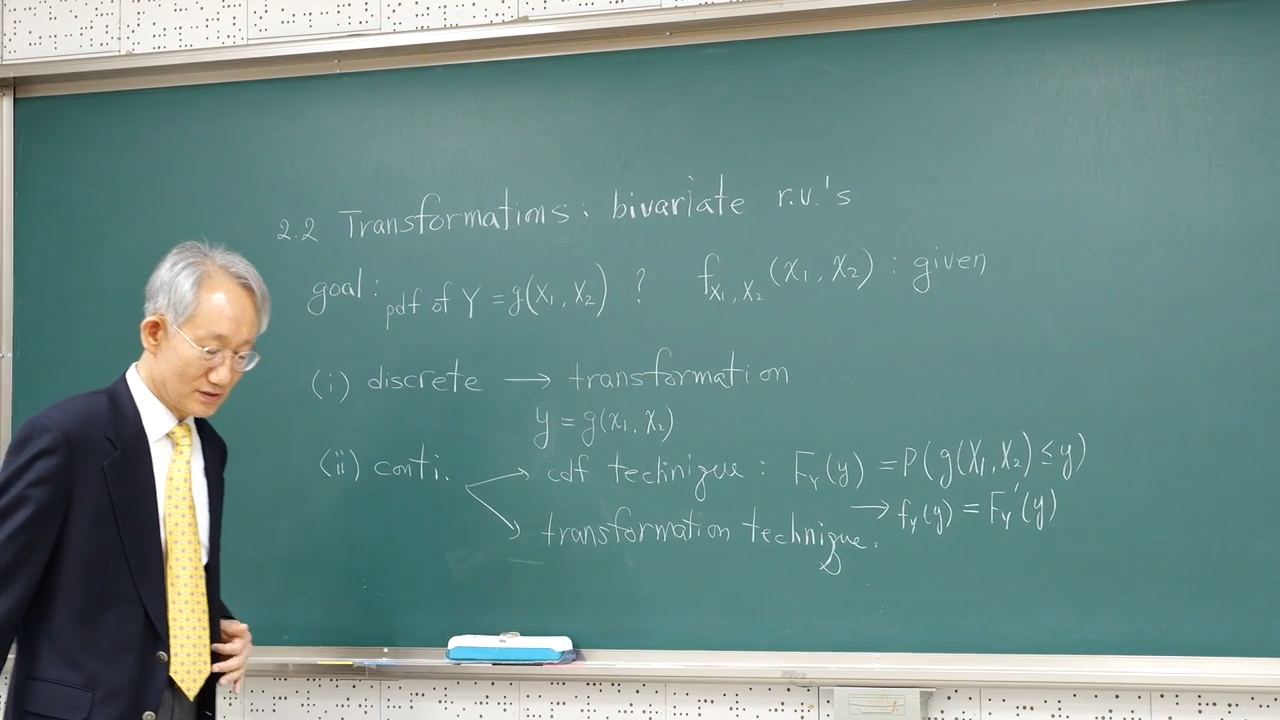 2.2 Transformations: bivariate r.v.'s
goal: pdf of Y = g(X₁, X₂) ? f_{X₁, X₂} (x₁, x₂) : given
(i) discrete → transformation
y = g(x₁, x₂)
(ii) conti. → cdf technique : F_Y(y) = P(g(X₁, X₂) ≤ y)
→ f_Y(y) = F_Y'(y)
→ transformation technique.